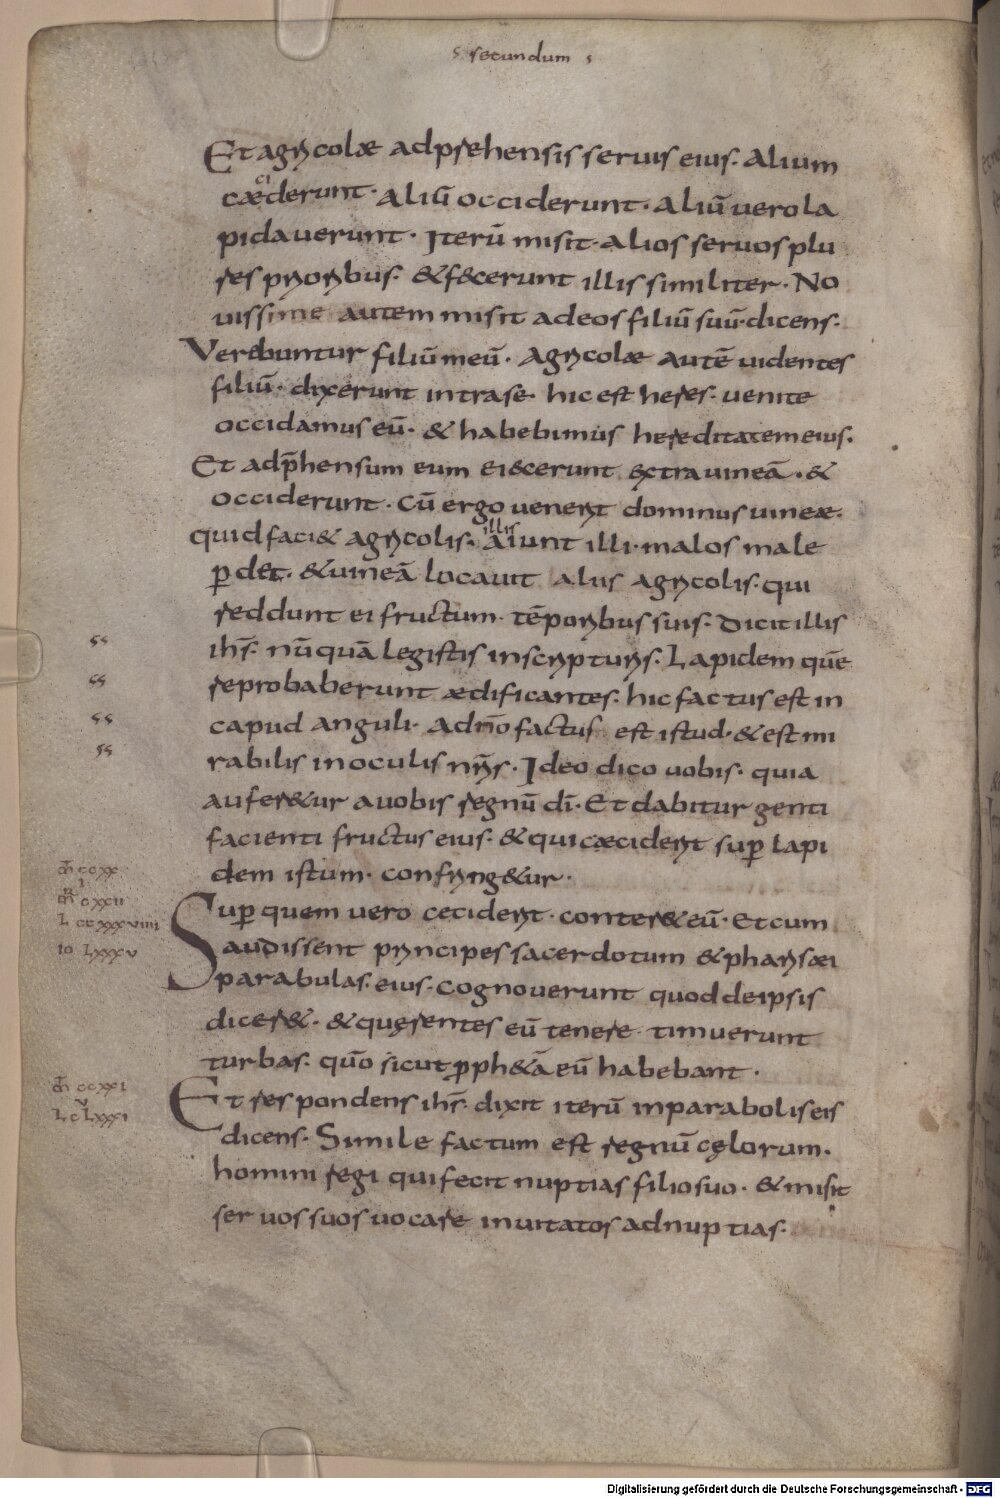 secundum
Et agricolæ adprehensis servis eius. Alium
cæciderunt. Aliū occiderunt. Aliū vero la
pidaverunt. Iterū misit. alios servos plu
res prioribus. & fecerunt illis similiter. No
vissime autem misit ad eos filiū suū. dicens.
Verebuntur filiū meū. Agricolæ autē videntes
filiū. dixerunt intra se. hic est heres. venite
occidamus eū. & habebimus hereditatem eius.
Et adp̄hensum eum eiecerunt extra vineā. &
occiderunt. Cū ergo venerit dominus vineæ.
quid faci& agricolis. illis aiunt illi. malos male
p̱det. & vineā locavit aliis agricolis. qui
reddunt ei fructum. tēporibus suis. Dicit illis
ihs̄. nūquā legistis in scripturis. Lapidem quē
reprobaberunt ædificantes. hic factus est in
capud anguli. Adn̄o factus est istud. & est mi
rabilis in oculis nr̄is. Ideo dico vobis. quia
aufer&ur a vobis regnū dī. Et dabitur genti
facienti fructus eius. & qui cæciderit sup̱ lapi
dem istum. confring&ur.
Sup̱ quem vero ceciderit. conter& eū. Et cum
audissent principes sacerdotum & pharisæi
parabulas. eius. cognoverunt quod de ipsis
dicer&. & quęrentes eū tenere. timuerunt
turbas. quō sicut p̱ph&ā eū habebant.
Et respondens ihs̄. dixit iterū in parabolis eis
dicens. Simile factum est regnū cęlorum.
homini regi qui fecit nuptias filio suo. & misit
servos suos vocare invitatos ad nuptias.
m̄ ccxx
mr̄ cxxii
L ccxxxviiii
io Lxxxv
m̄ ccxxi
Lc Lxxxi
Digitalisierung gefördert durch die Deutsche Forschungsgemeinschaft - DFG